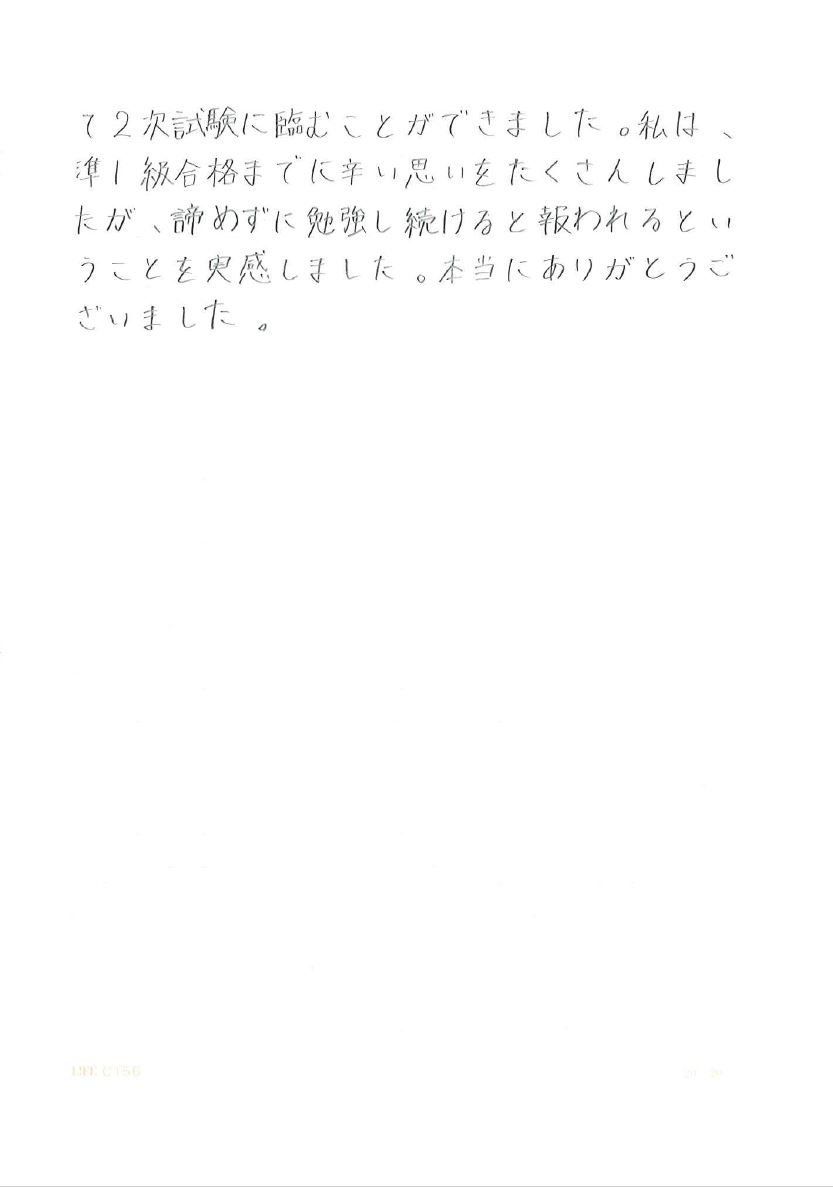 て2次試験に臨むことができました。私は、
準1級合格までに辛い思いをたくさんしまし
たが、諦めずに勉強し続けると報われるとい
うことを実感しました。本当にありがとうご
ざいました。
LIFE C156
20 20